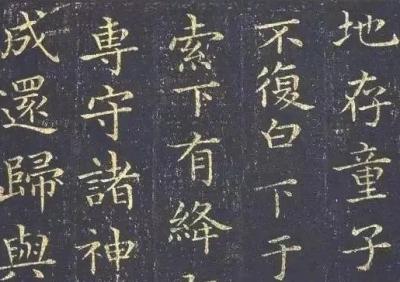 地存童子
不復白下于
索下有絳
專守諸神
成還歸與